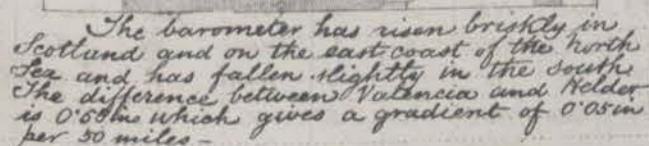 The barometer has risen briskly in
Scotland and on the east coast of the North
Sea and has fallen slightly in the South
The difference between Valencia and Helder
is which gives a gradient of 0.05 in
per 50 miles —